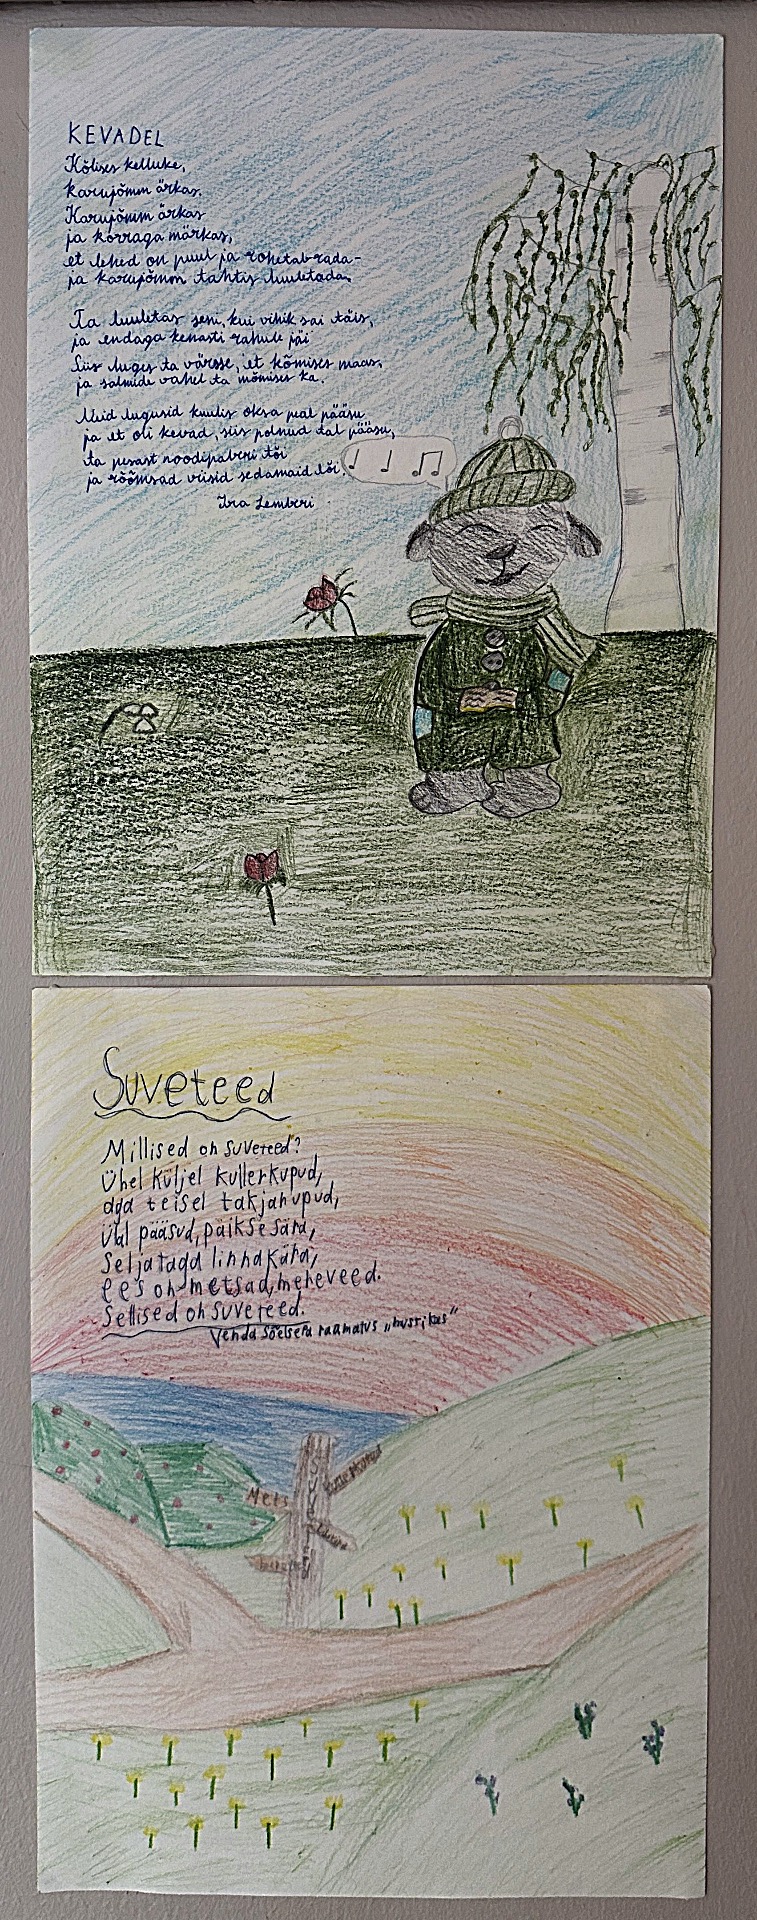 KEVADEL
Kõlises kelluke,
karujõmm ärkas.
Karujõmm ärkas
ja korraga märkas,
et lehed on puul ja rohetab rada -
ja karujõmm tahtis luuletada.
Ta luuletas seni, kui vihik sai täis,
ja endaga kenasti rahule jäi
Siis luges ta värsse, et kõmises maas,
ja salmide vahel ta mõmises ka.
Neid lugusid kuulis oksa peal pääsu
ja et oli kevad, siis polnud tal pääsu,
ta pesast noodipaberi tõi
ja rõõmsad viisid sedamaid lõi.
Ira Lemberi
Suveteed
Millised on suveteed?
Ühel küljel kullerkupud,
aga teisel takjanupud,
üal pääsud, päikse sära,
seljataga linnakära,
ees on metsad, mereveed.
Sellised on suveteed.
Venda Sõelsepa raamatus
Mets